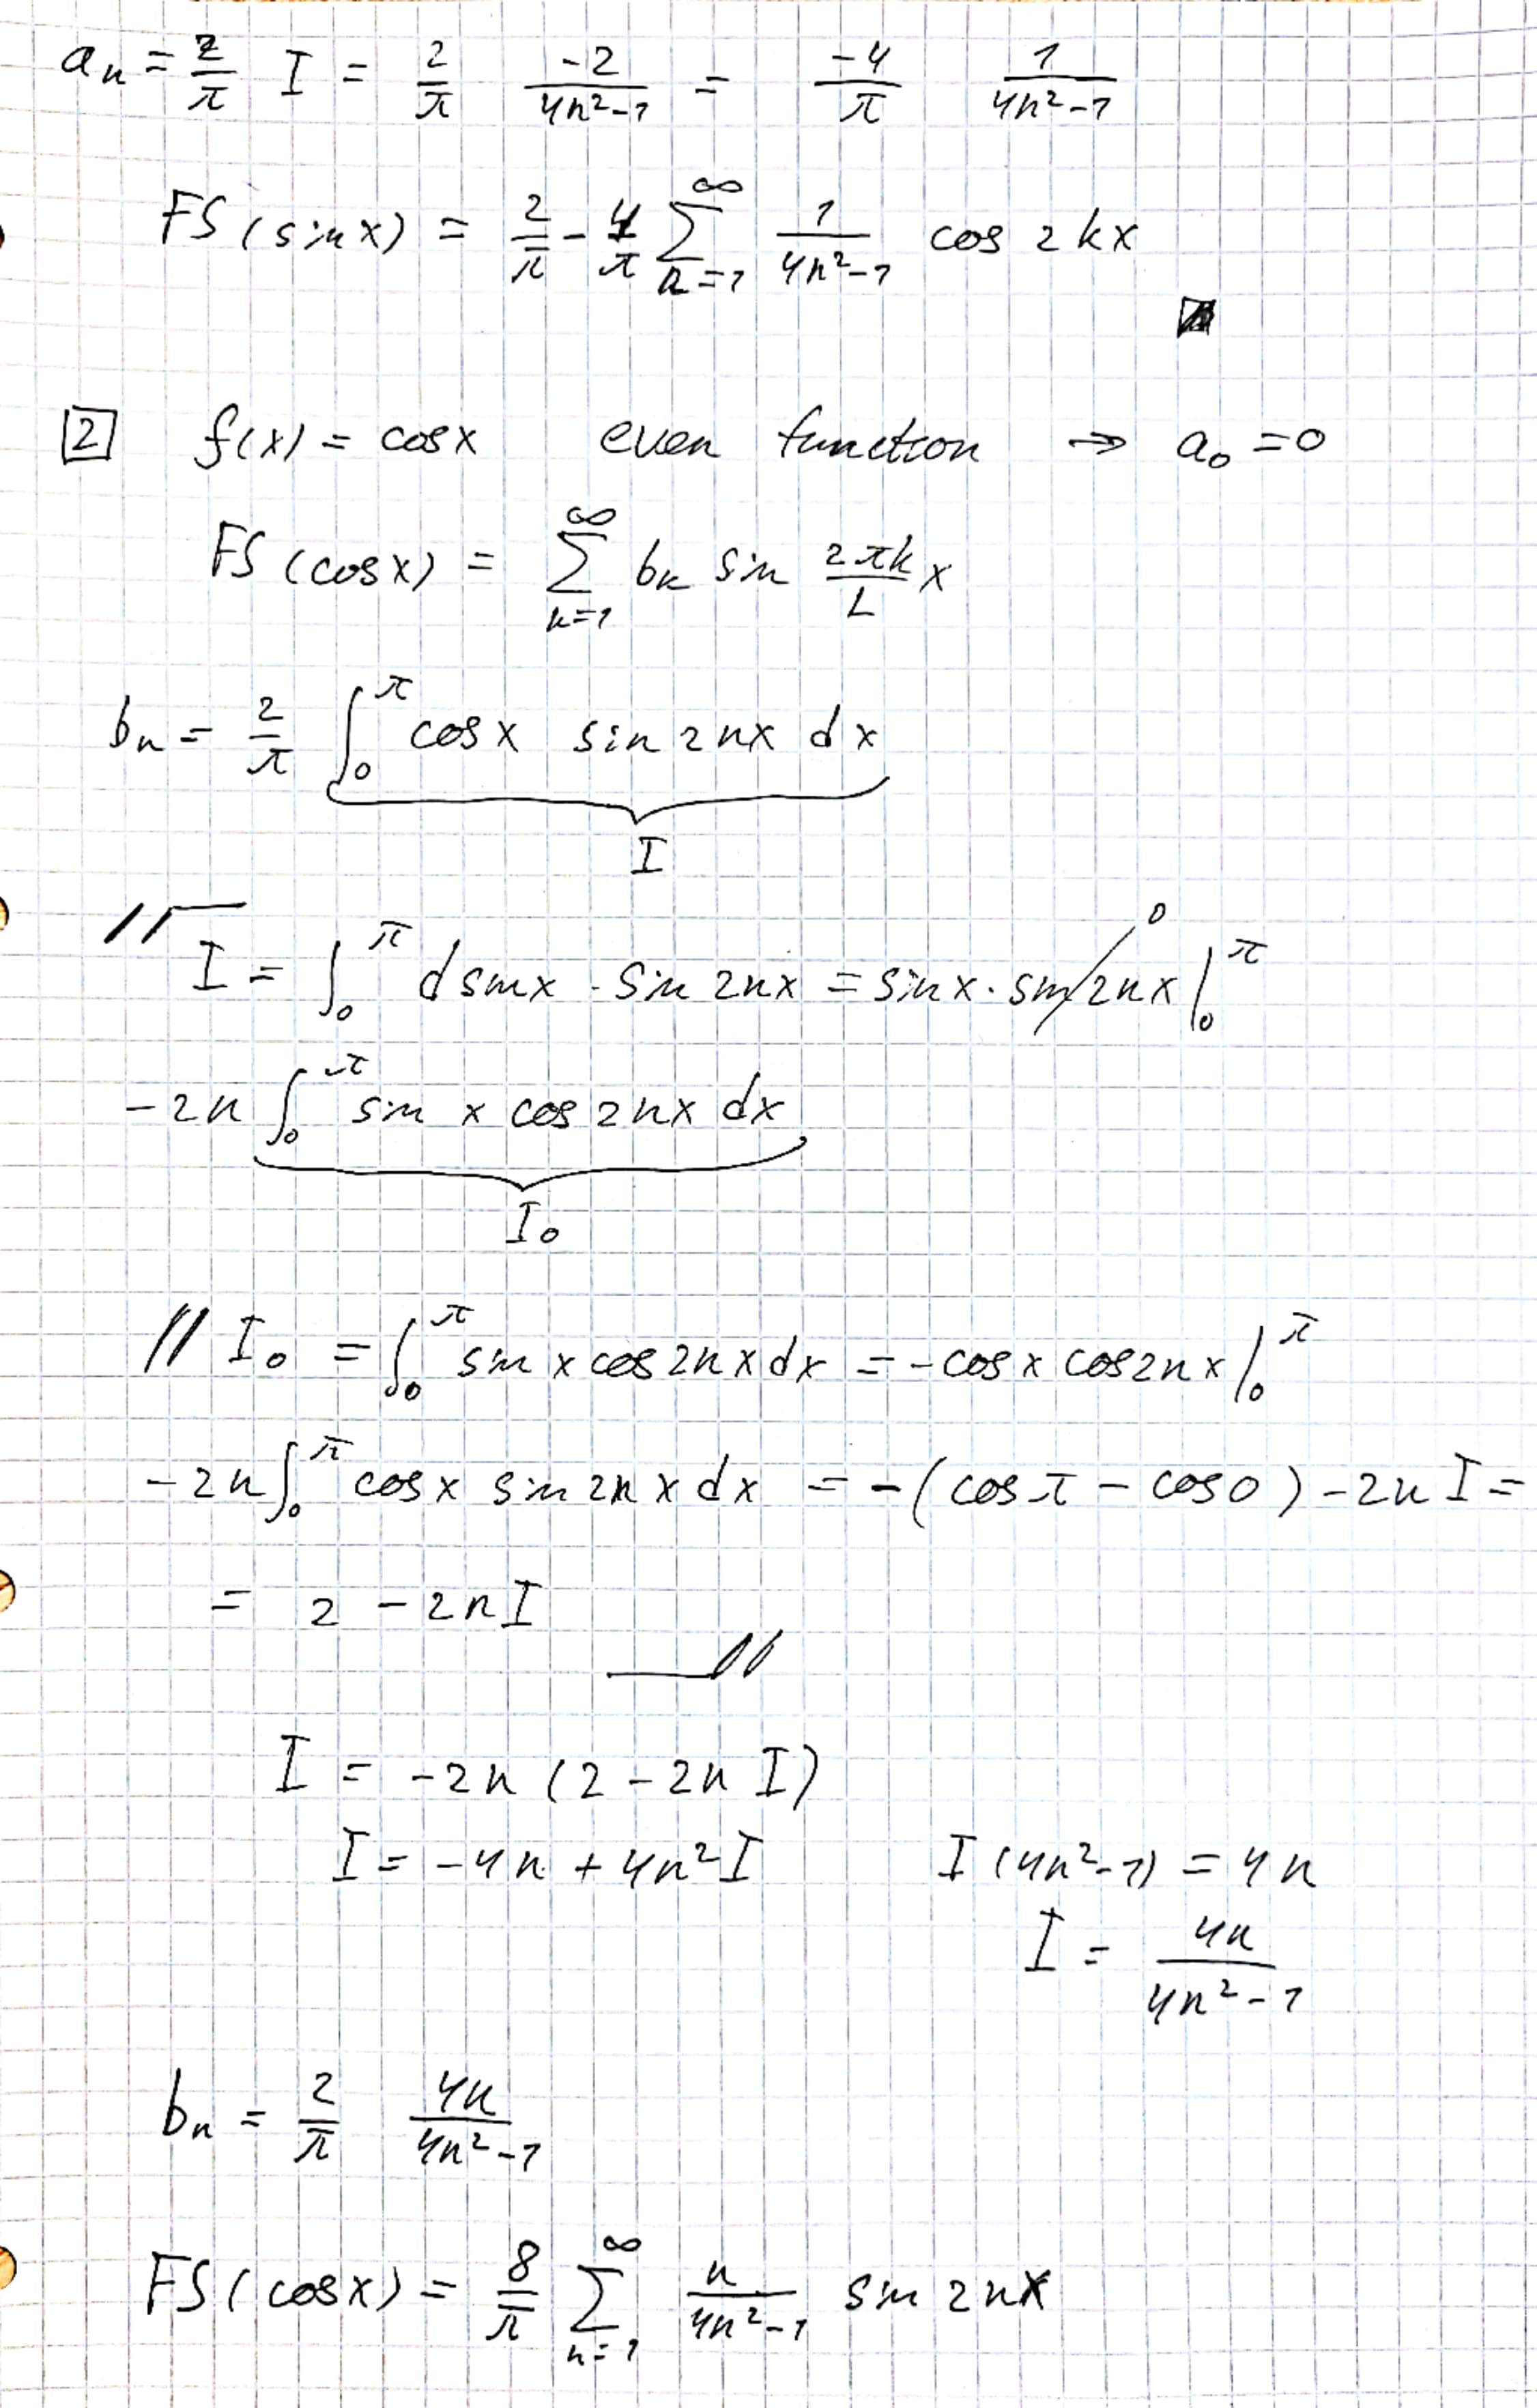 aₙ = 2/π I = 2/π · -2/(4n²-1) = -4/π · 1/(4n²-1)
FS(sin x) = 2/π - 4/π ∑_{k=1}^{∞} 1/(4n²-1) cos 2kx
[2] f(x) = cos x even function ⇒ a₀ = 0
FS(cos x) = ∑_{k=1}^{∞} bₖ sin (2πk/L) x
bₙ = 2/π ∫₀^π cos x sin 2nx dx
I
// I = ∫₀^π d sin x · sin 2nx = sin x · sin 2nx |₀^π 0
-2n ∫₀^π sin x cos 2nx dx
I₀
// I₀ = ∫₀^π sin x cos 2nx dx = -cos x cos 2nx |₀^π
-2n ∫₀^π cos x sin 2nx dx = -(cos π - cos 0) - 2n I =
= 2 - 2n I //
I = -2n (2 - 2n I)
I = -4n + 4n² I I(4n²-1) = 4n
I = 4n/(4n²-1)
bₙ = 2/π · 4n/(4n²-1)
FS(cos x) = 8/π ∑_{n=1}^{∞} n/(4n²-1) sin 2nx